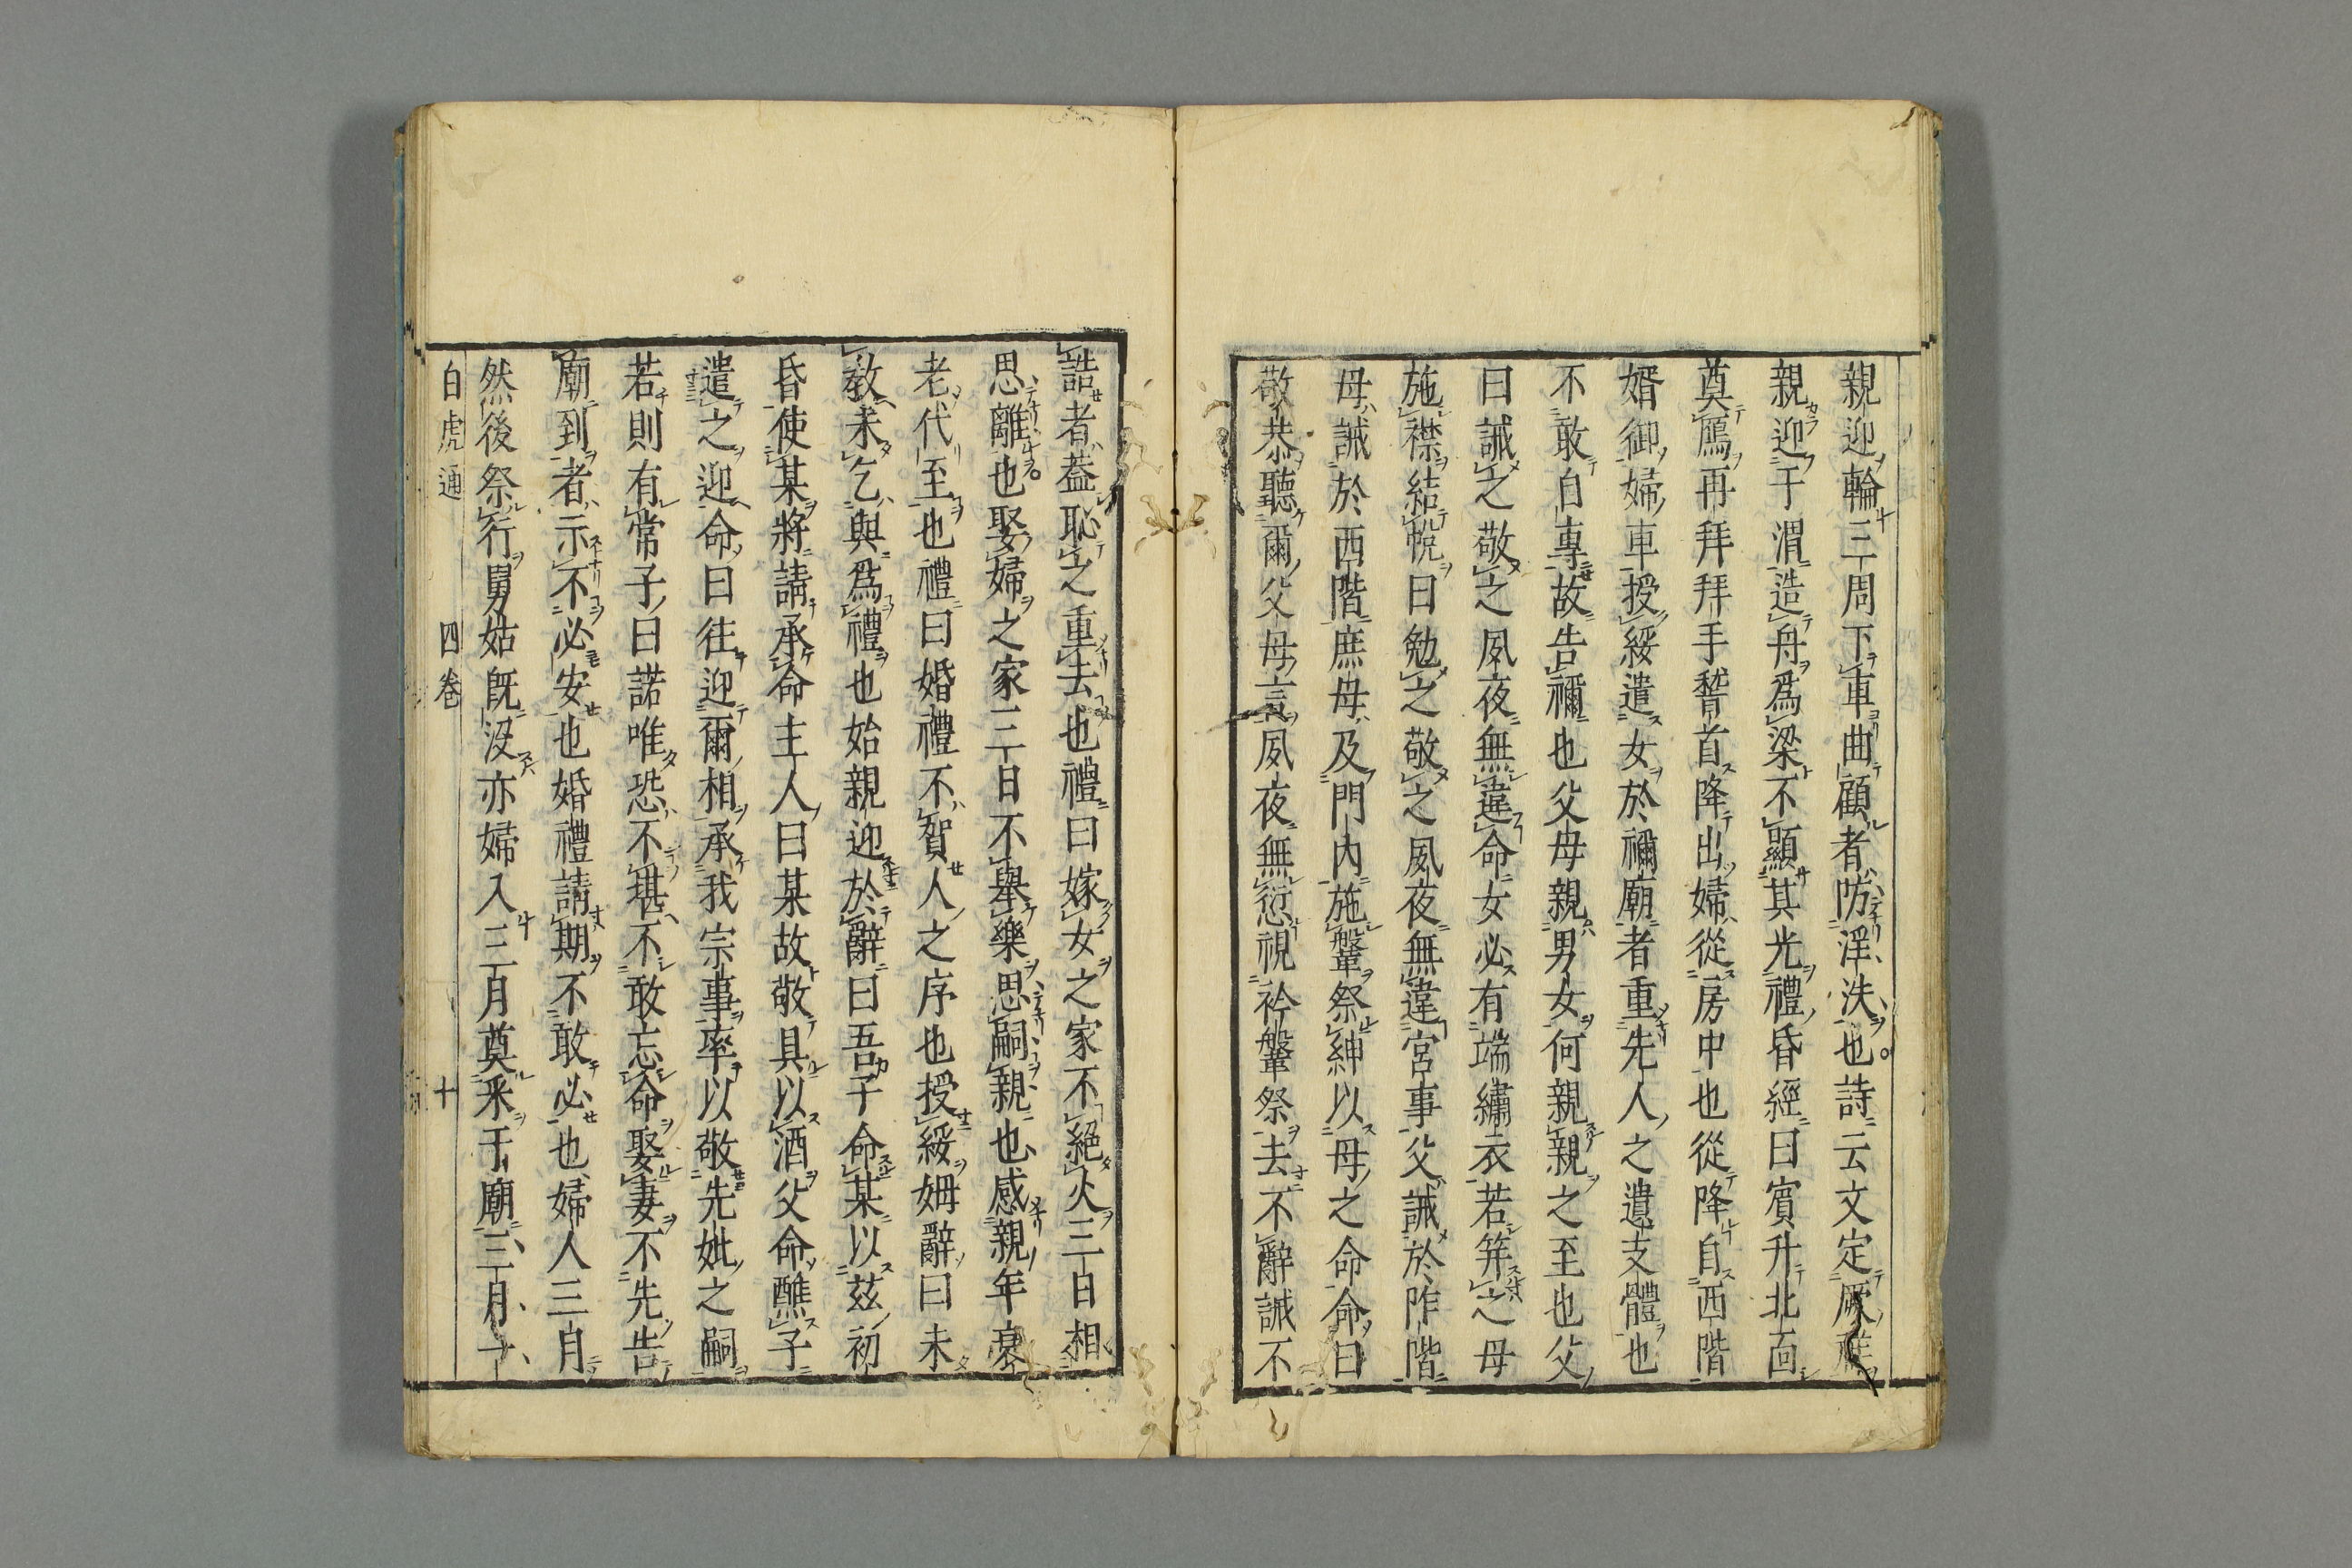 親迎輪三周下車曲顧者防淫泆也詩云文定厥祥
親迎于渭造舟爲梁不顯其光禮昏經曰賓升北面
奠鴈再拜拜手稽首降出婦從房中也從降自西階
婿御婦車授綏遣女於禰廟者重先人之遺支體也
不敢自專故告禰也父母親男女何親親之至也父
曰誡之敬之夙夜無違命女必有端繡衣若笄之母
施襟結帨曰勉之敬之夙夜無違宮事父誡於阼階
母誡於西階庶母及門內施鞶祭紳以母之命命曰
敬恭聽爾父母言夙夜無愆視衿鞶祭去不辭誡不
誥者葢恥之重去也禮曰嫁女之家不絕火三日相
思離也娶婦之家三日不舉樂思嗣親也感親年衰
老代至也禮曰婚禮不賀人之序也授綏姆辭曰未
教未乞與爲禮也始親迎於辭曰吾子命某以茲初
昏使某將請承命主人曰某故敬具以酒父命醮子
遣之迎命曰往迎爾相承我宗事率以敬先妣之嗣
若則有常子曰諾唯恐不堪不敢忘命娶妻不先告
廟到者示不必安也婚禮請期不敢必也婦人三月
然後祭行舅姑旣沒亦婦入三月奠采于廟三月一
白虎通 四卷 十